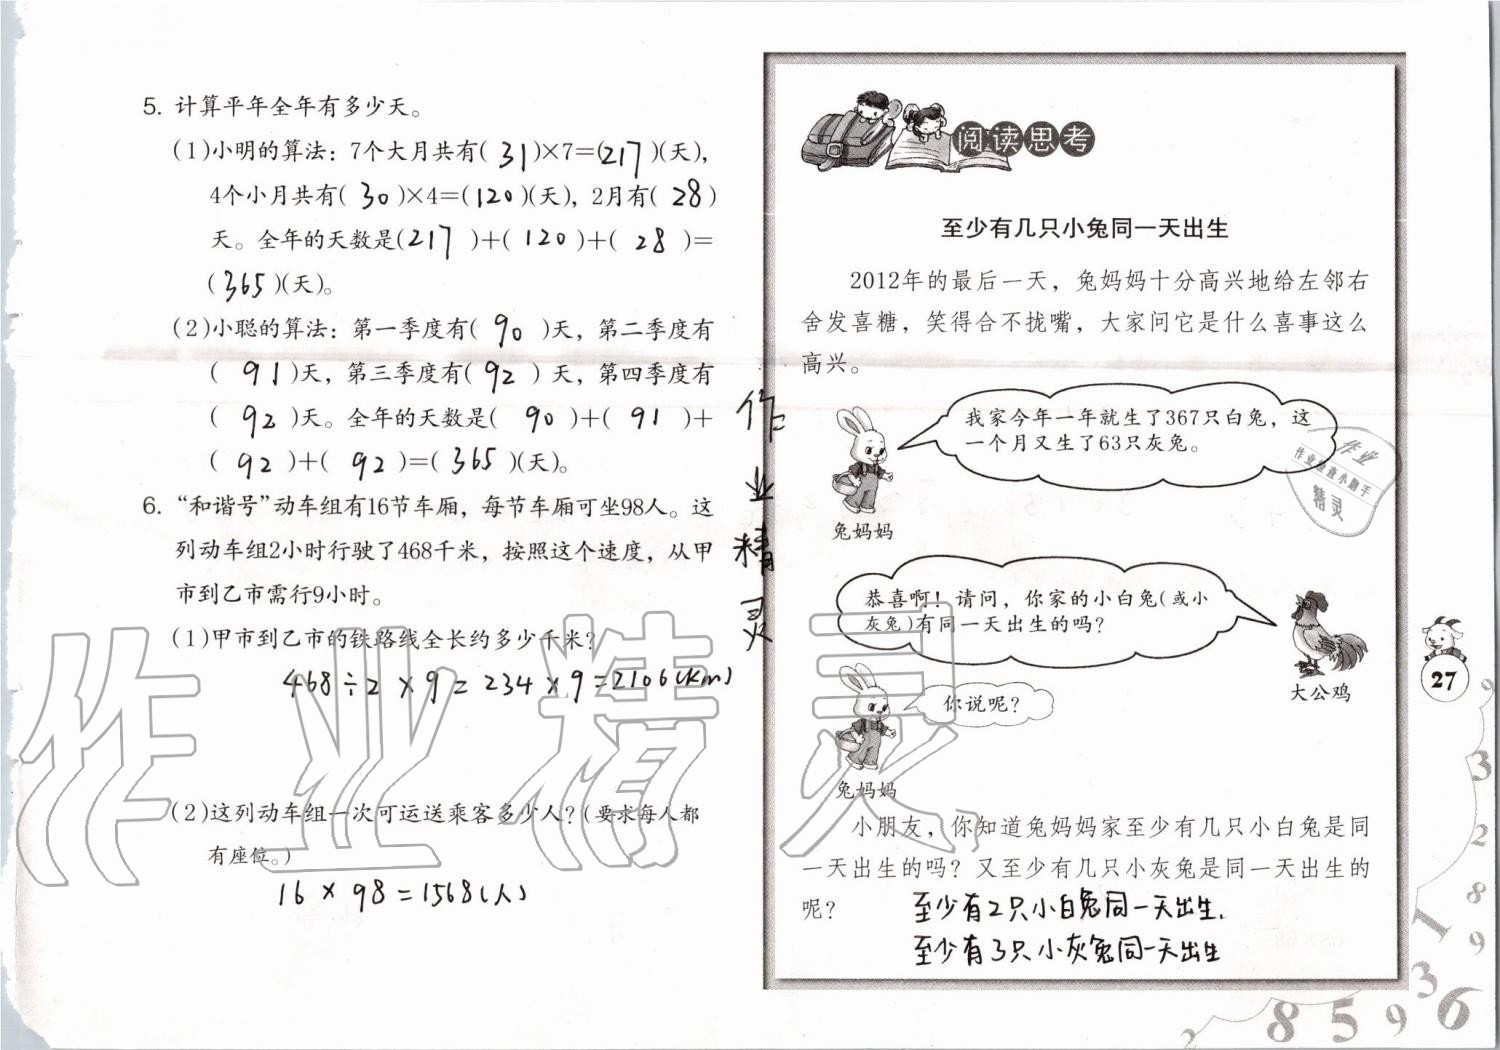 5. 计算平年全年有多少天。
(1)小明的算法：7个大月共有( 31 )×7=(217)(天)，
4个小月共有( 30 )×4=(120)(天)，2月有( 28 )
天。全年的天数是(217 )+( 120 )+( 28 )=
(365)(天)。
(2)小聪的算法：第一季度有( 90 )天，第二季度有
( 91 )天，第三季度有( 92 )天，第四季度有
( 92 )天。全年的天数是( 90 )+( 91 )+
( 92 )+( 92 )=( 365 )(天)。
6. “和谐号”动车组有16节车厢，每节车厢可坐98人。这
列动车组2小时行驶了468千米，按照这个速度，从甲
市到乙市需行9小时。
(1)甲市到乙市的铁路线全长约多少千米？
468÷2×9=234×9=2106(km)
(2)这列动车组一次可运送乘客多少人？(要求每人都
有座位。)
16×98=1568(人)
作业精灵
作业精灵
阅读思考
至少有几只小兔同一天出生
2012年的最后一天，兔妈妈十分高兴地给左邻右
舍发喜糖，笑得合不拢嘴，大家问它是什么喜事这么
高兴。
我家今年一年就生了367只白兔，这
一个月又生了63只灰兔。
兔妈妈
作业
作业检查小助手
精灵
恭喜啊！请问，你家的小白兔(或小
灰兔)有同一天出生的吗？
大公鸡
你说呢？
兔妈妈
小朋友，你知道兔妈妈家至少有几只小白兔是同
一天出生的吗？又至少有几只小灰兔是同一天出生的
呢？
至少有2只小白兔同一天出生.
至少有3只小灰兔同一天出生
27
9
3
2
8
9
1
3
6
9
5
8
2